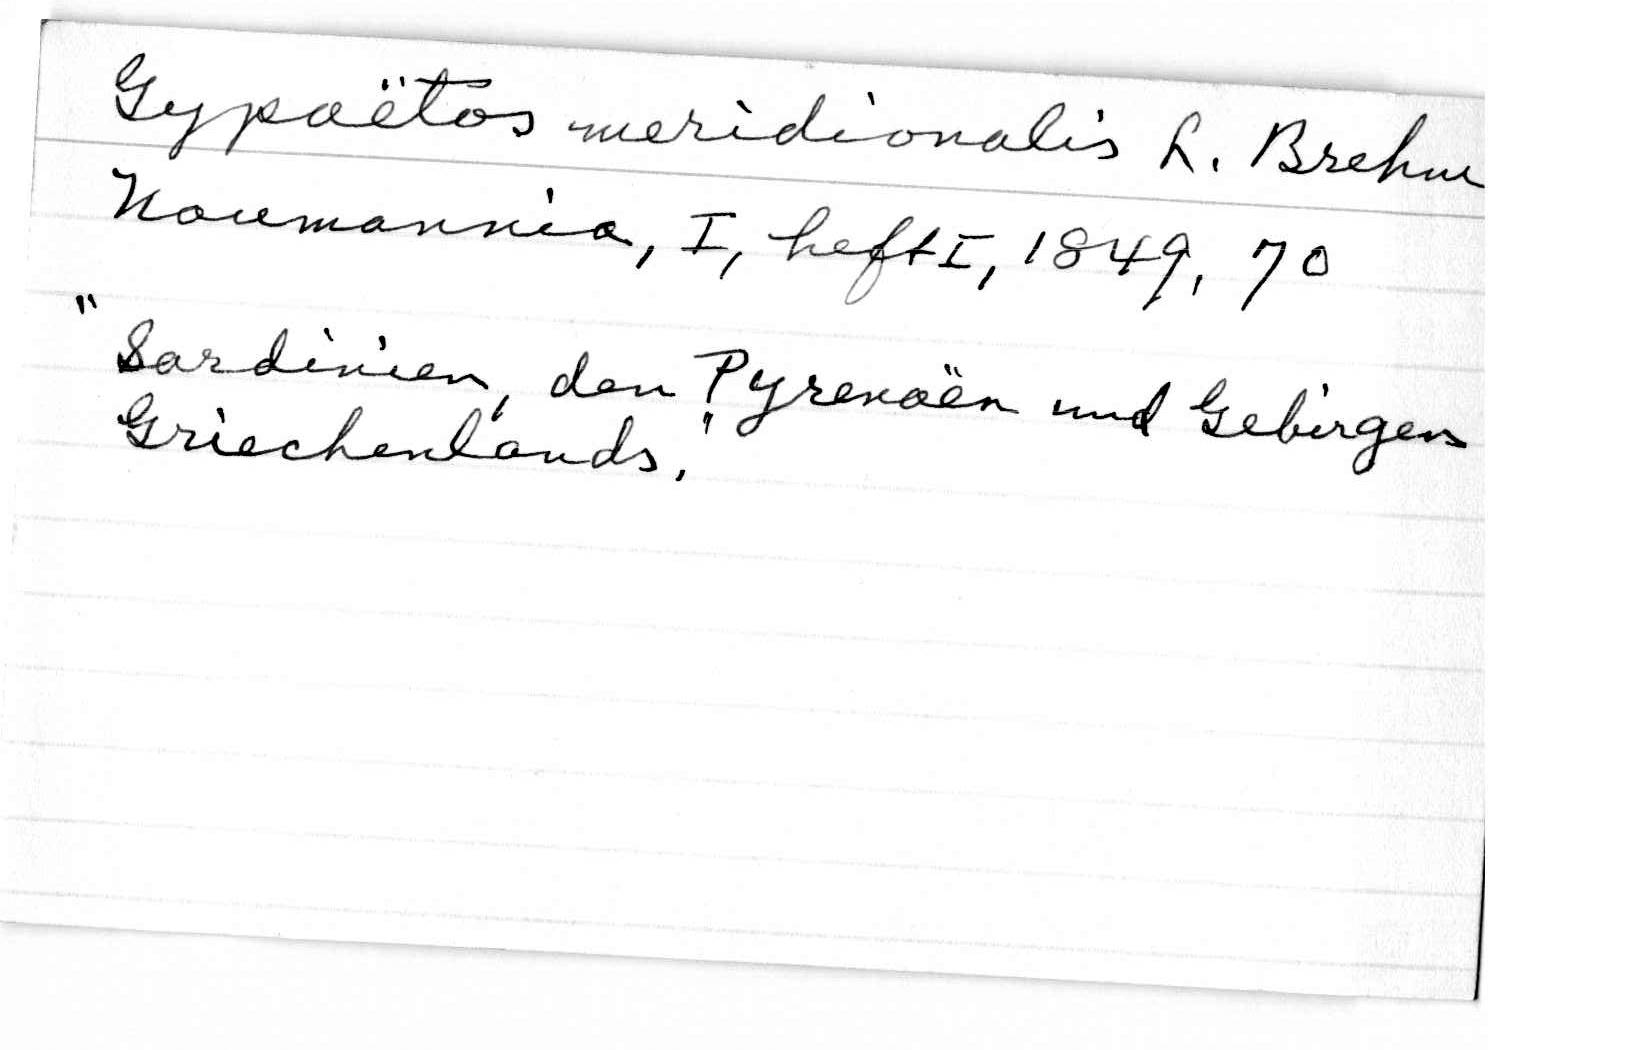 Gypaëtos meridionalis L. Brehm
Naumannia, I, heft I, 1849, 70
"Sardinien, den Pyrenäen und Gebirgen
Griechenlands."